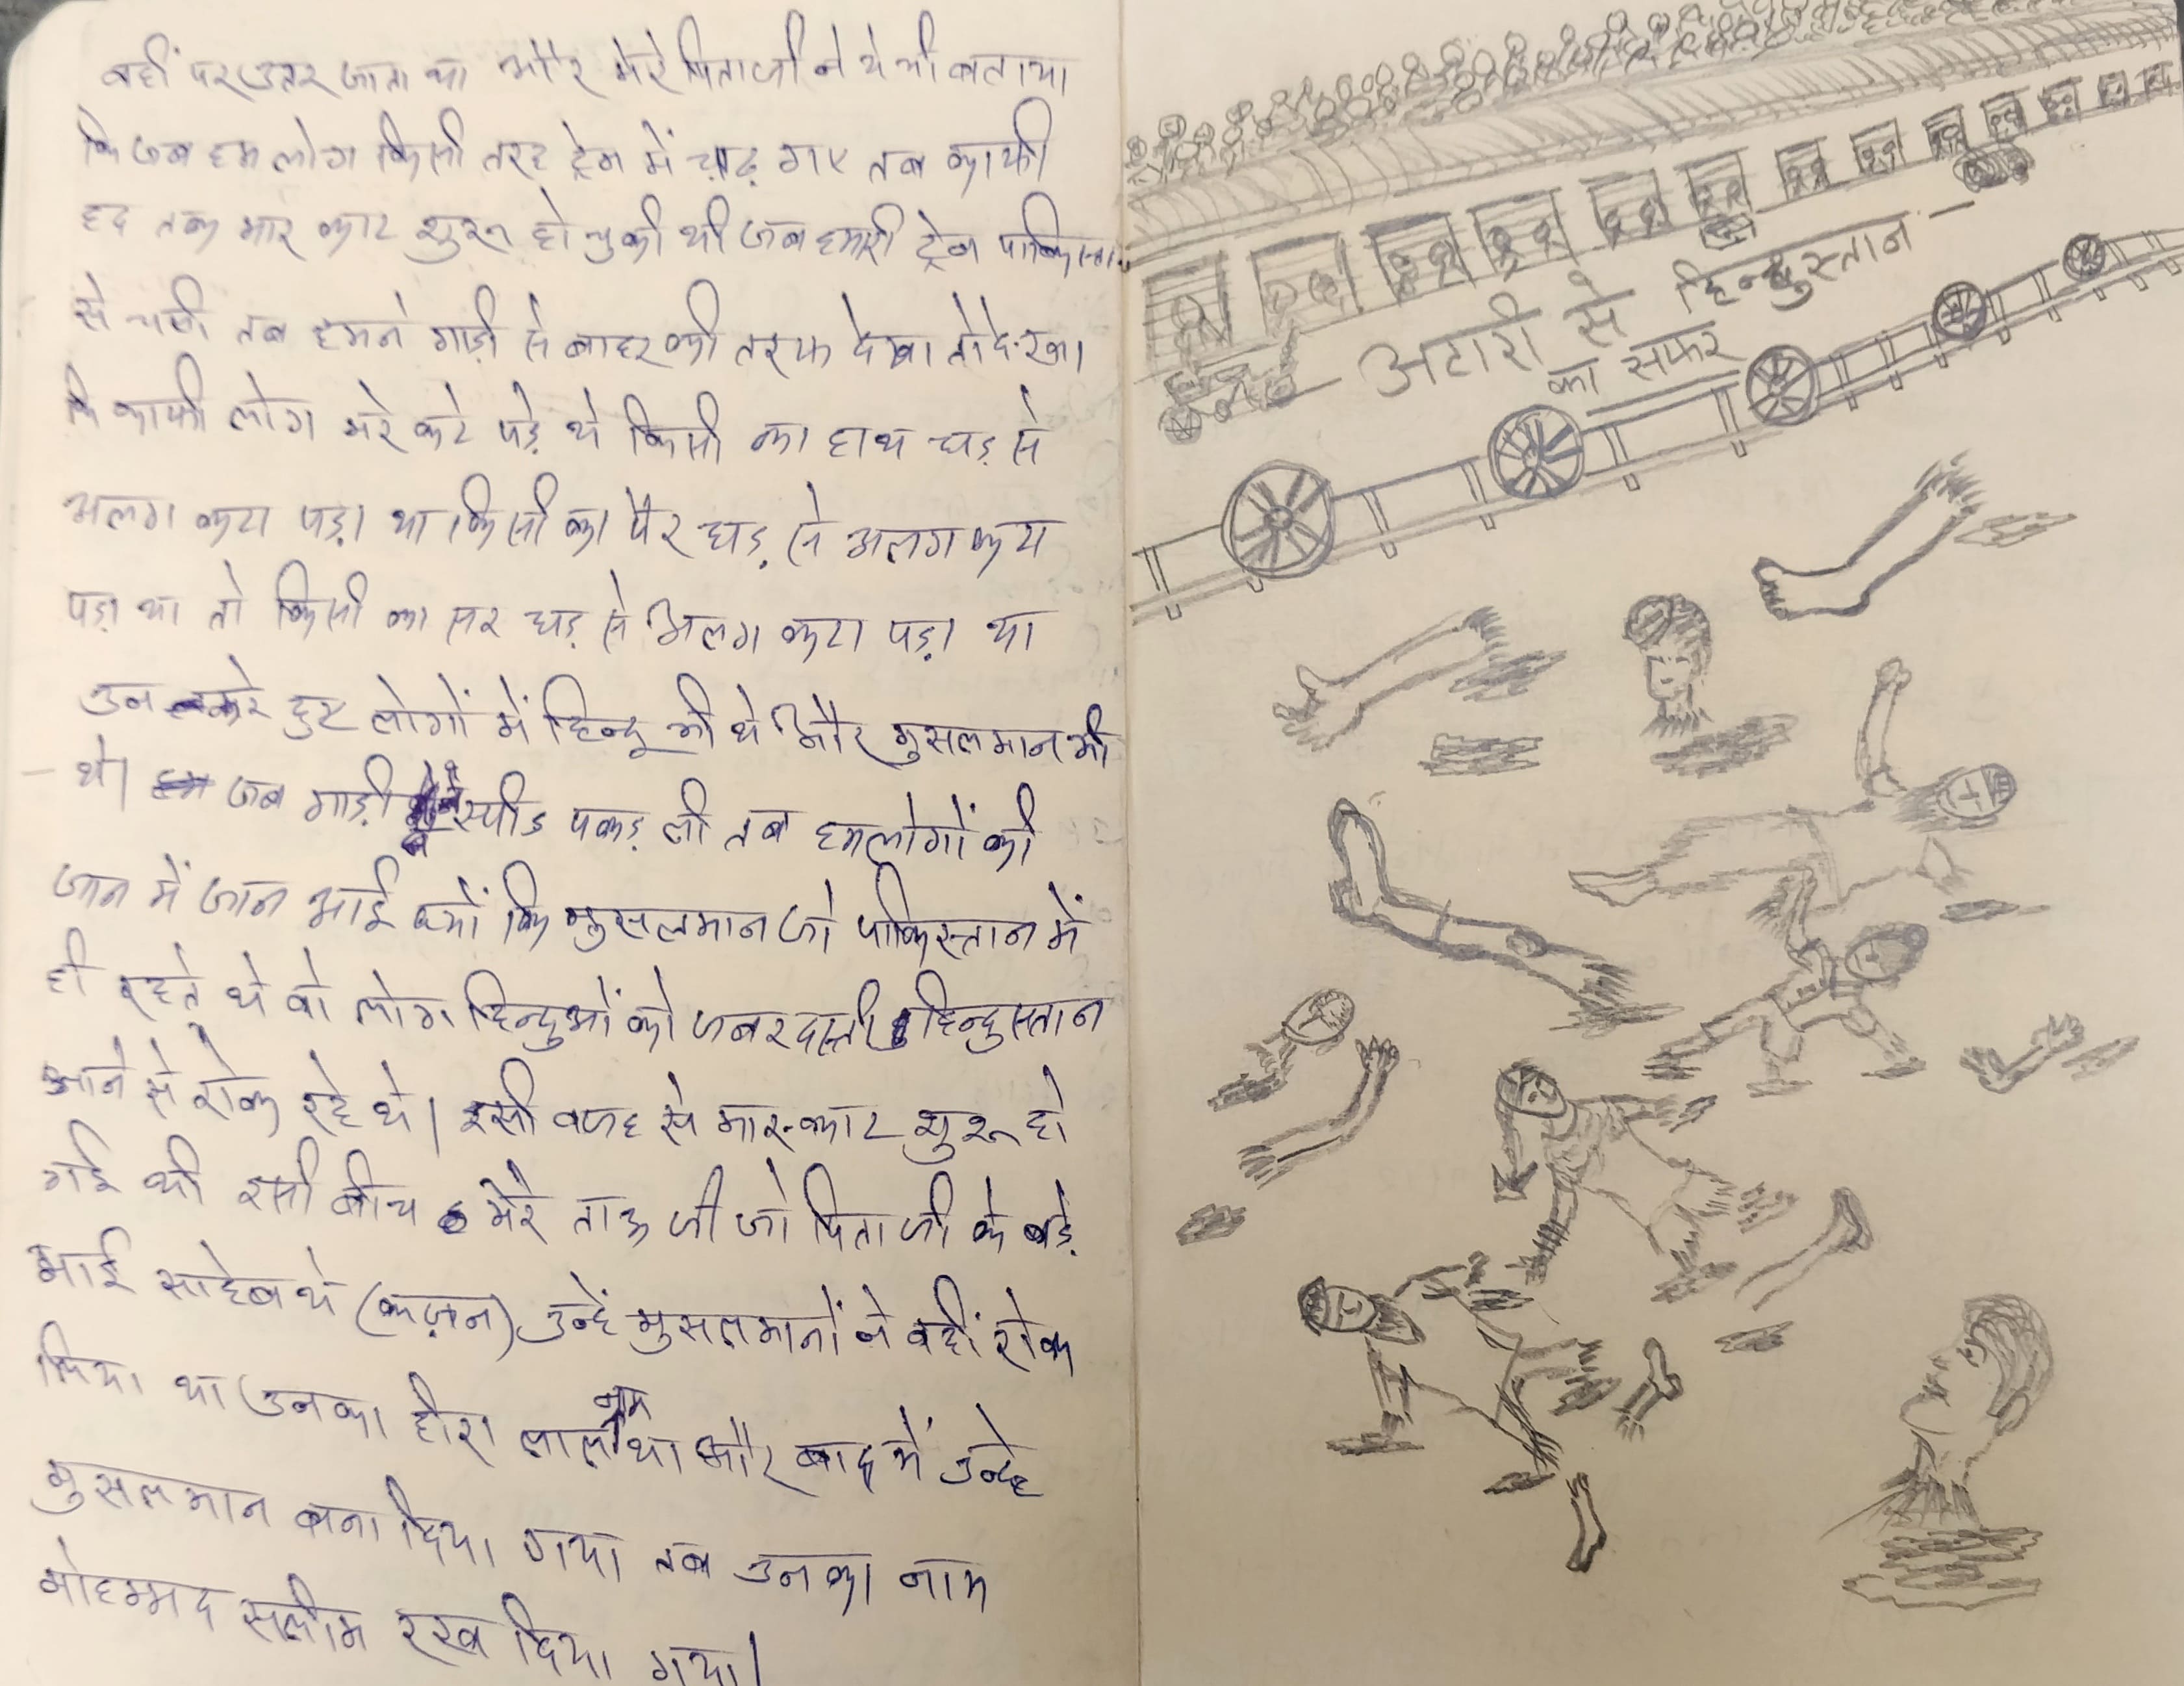 वहीं पर उतर जाता था और मेरे पिताजी ने ये भी बताया
कि जब हम लोग किसी तरह ट्रेन में चढ़ गए तब काफी
हद तक मार काट शुरू हो चुकी थी जब हमारी ट्रेन पाकिस्तान
से चली तब हमने गाड़ी से बाहर की तरफ देखा तो देखा
कि काफी लोग मरे कटे पड़े थे किसी का हाथ धड़ से
अलग कटा पड़ा था किसी का पैर धड़ से अलग कटा
पड़ा था तो किसी का सर धड़ से अलग कटा पड़ा था
उन मरे हुए लोगों में हिन्दू भी थे और मुसलमान भी
थे। जब गाड़ी ने स्पीड पकड़ ली तब हमलोगों की
जान में जान आई क्यों कि मुसलमान जो पाकिस्तान में
ही रहते थे वो लोग हिन्दुओं को जबरदस्ती हिन्दुस्तान
आने से रोक रहे थे। इसी वजह से मार-काट शुरू हो
गई थी इसी बीच मेरे ताऊ जी जो पिताजी के बड़े
भाई साहेब थे (कज़न) उन्हें मुसलमानों ने वहीं रोक
लिया था उनका हीरा लाल नाम था और बाद में उन्हें
मुसलमान बना दिया गया तब उनका नाम
मोहम्मद सलीम रख दिया गया।
अटारी से हिन्दुस्तान
का सफर